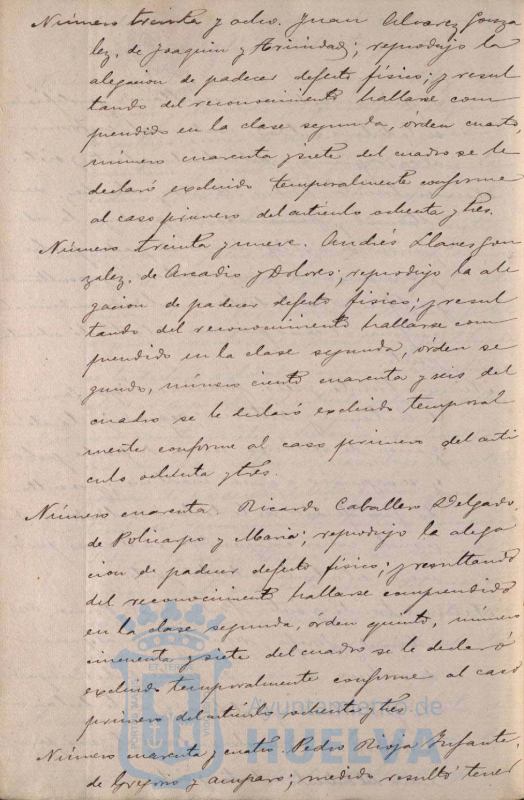 Número treinta y ocho. Juan Alvarez Gonza
lez, de Joaquin y Trinidad; reprodujo la
alegacion de padecer defecto físico; y resul
tando del reconocimiento hallarse com
prendido en la clase segunda, órden cuarto
número cuarenta y siete del cuadro se le
declaró excluido temporalmente conforme
al caso primero del articulo ochenta y tres.
Número treinta y nueve. Andrés Llanes Gon
zalez, de Arcadio y Dolores; reprodujo la ale
gacion de padecer defecto físico; y resul
tando del reconocimiento hallarse com
prendido en la clase segunda, órden se
gundo, número ciento cuarenta y seis del
cuadro se le declaró excluido temporal
mente conforme al caso primero del arti
culo ochenta y tres.
Número cuarenta Ricardo Caballero Delgado,
de Policarpo y Maria; reprodujo la alega
cion de padecer defecto físico; y resultando
del reconocimiento hallarse comprendido
en la clase segunda, órden quinto, número
cincuenta y siete del cuadro se le declaró
excluido temporalmente conforme al caso
primero del articulo ochenta y tres
Número cuarenta y cuatro. Pedro Rioja Infante,
de Gregorio y Amparo; medido resultó tener
Ayuntamiento de
HUELVA